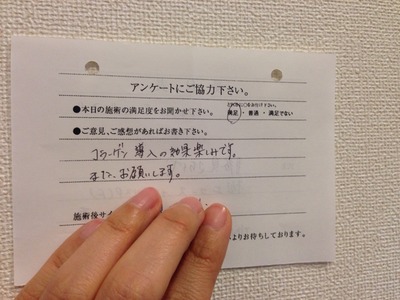 アンケートにご協力下さい。
●本日の施術の満足度をお聞かせ下さい。
満足 ・ 普通 ・ 満足でない
●ご意見、ご感想があればお書き下さい。
コラーゲン導入の効果楽しみです。
また、お願いします。
施術後サイ
よりお待ちしております。